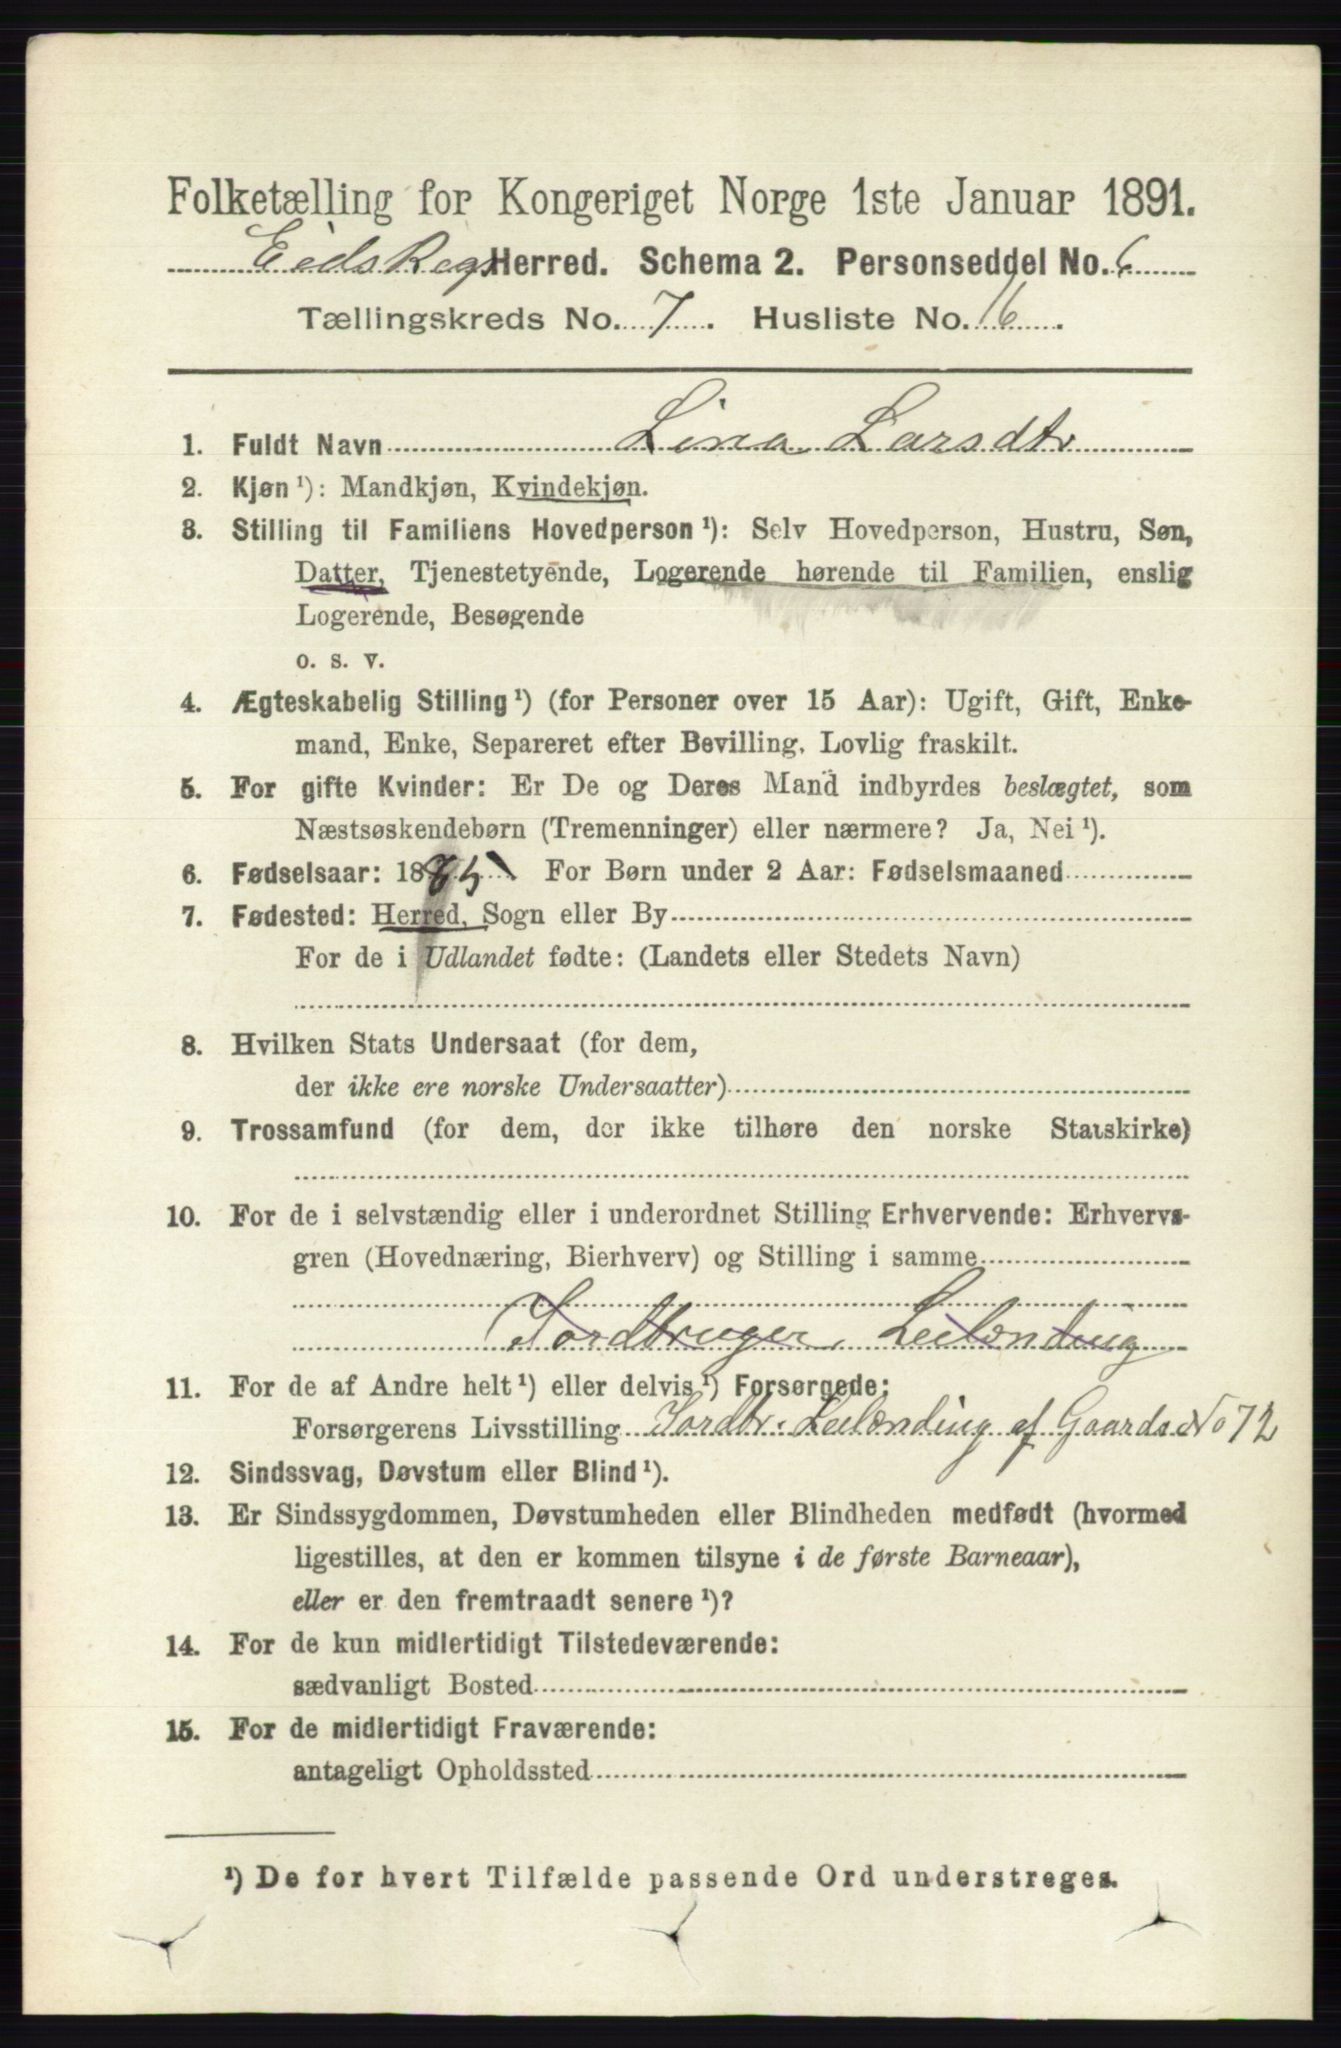 Folketælling for Kongeriget Norge 1ste Januar 1891.
Eidskogs Herred. Schema 2. Personseddel No. 6
Tællingskreds No. 7. Husliste No. 16.
1. Fuldt Navn Lina Larsdtr
2. Kjøn ¹): Mandkjøn, Kvindekjøn.
3. Stilling til Familiens Hovedperson ¹): Selv Hovedperson, Hustru, Søn,
Datter, Tjenestetyende, Logerende hørende til Familien, enslig
Logerende, Besøgende
o. s. v.
4. Ægteskabelig Stilling ¹) (for Personer over 15 Aar): Ugift, Gift, Enke-
mand, Enke, Separeret efter Bevilling. Lovlig fraskilt.
5. For gifte Kvinder: Er De og Deres Mand indbyrdes beslægtet, som
Næstsøskendebørn (Tremenninger) eller nærmere? Ja, Nei ¹).
6. Fødselsaar: 1885. For Børn under 2 Aar: Fødselsmaaned
7. Fødested: Herred, Sogn eller By
For de i Udlandet fødte: (Landets eller Stedets Navn)
8. Hvilken Stats Undersaat (for dem,
der ikke ere norske Undersaatter)
9. Trossamfund (for dem, der ikke tilhøre den norske Statskirke)
10. For de i selvstændig eller i underordnet Stilling Erhvervende: Erhvervs-
gren (Hovednæring, Bierhverv) og Stilling i samme
Jordbruger, Leilænding
11. For de af Andre helt ¹) eller delvis ¹) Forsørgede:
Forsørgerens Livsstilling Jordbr. Leilænding af Gaards No 72
12. Sindssvag, Døvstum eller Blind ¹).
13. Er Sindssygdommen, Døvstumheden eller Blindheden medfødt (hvormed
ligestilles, at den er kommen tilsyne i de første Barneaar),
eller er den fremtraadt senere ¹)?
14. For de kun midlertidigt Tilstedeværende:
sædvanligt Bosted
15. For de midlertidigt Fraværende:
antageligt Opholdssted
¹) De for hvert Tilfælde passende Ord understreges.